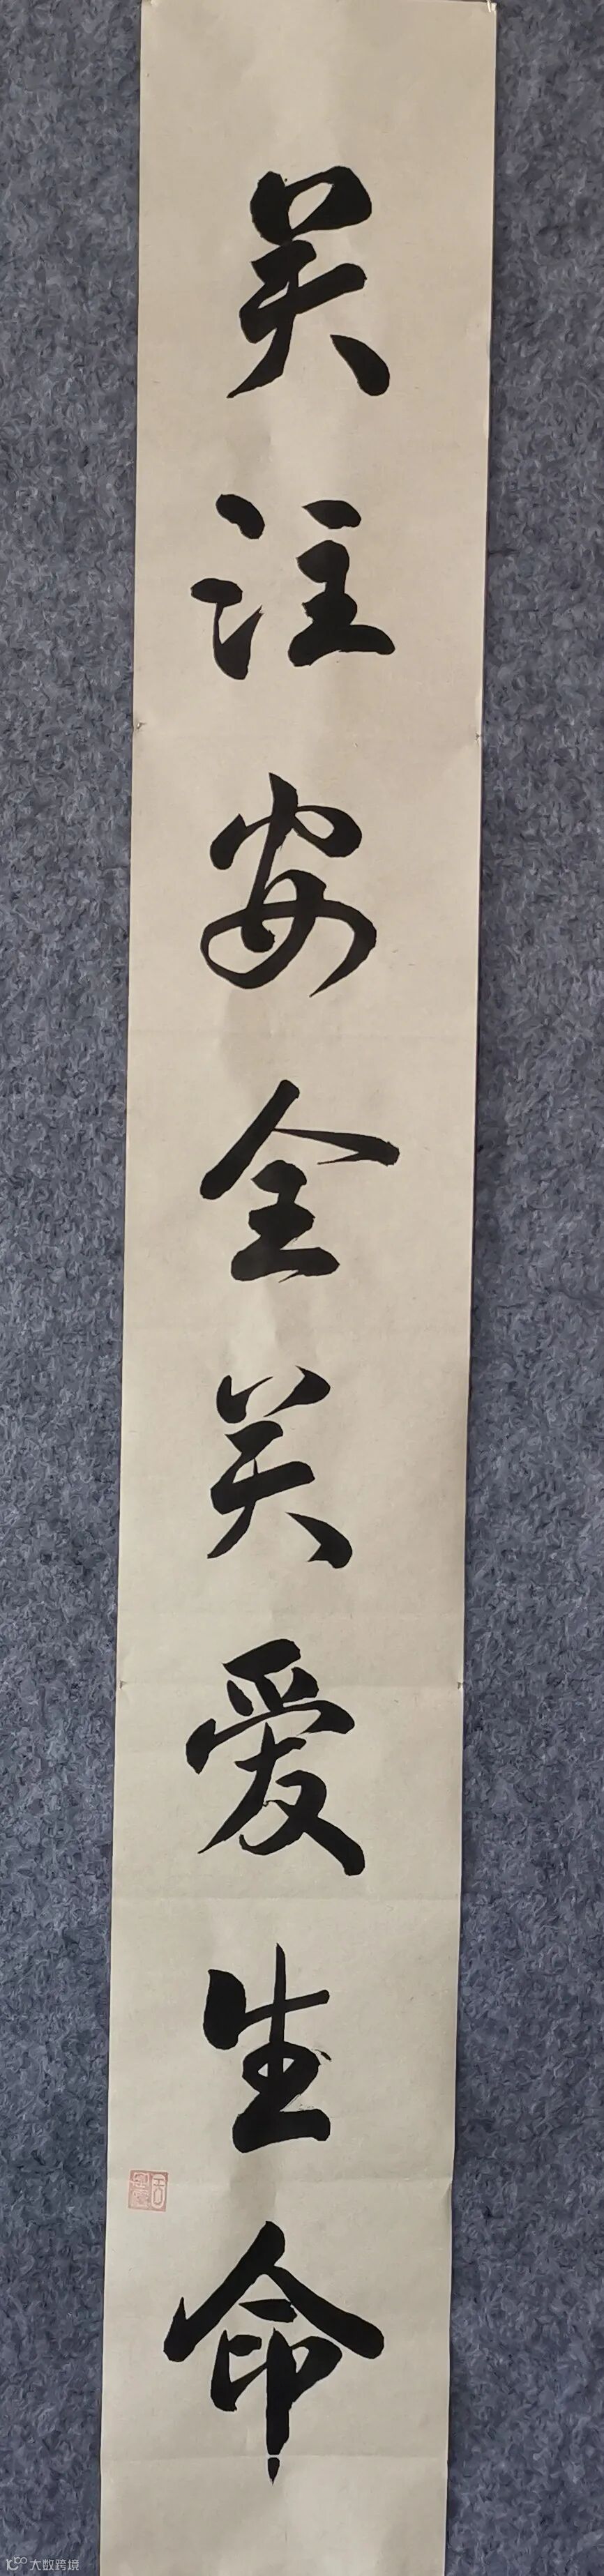 关注安全关爱生命
大数跨境